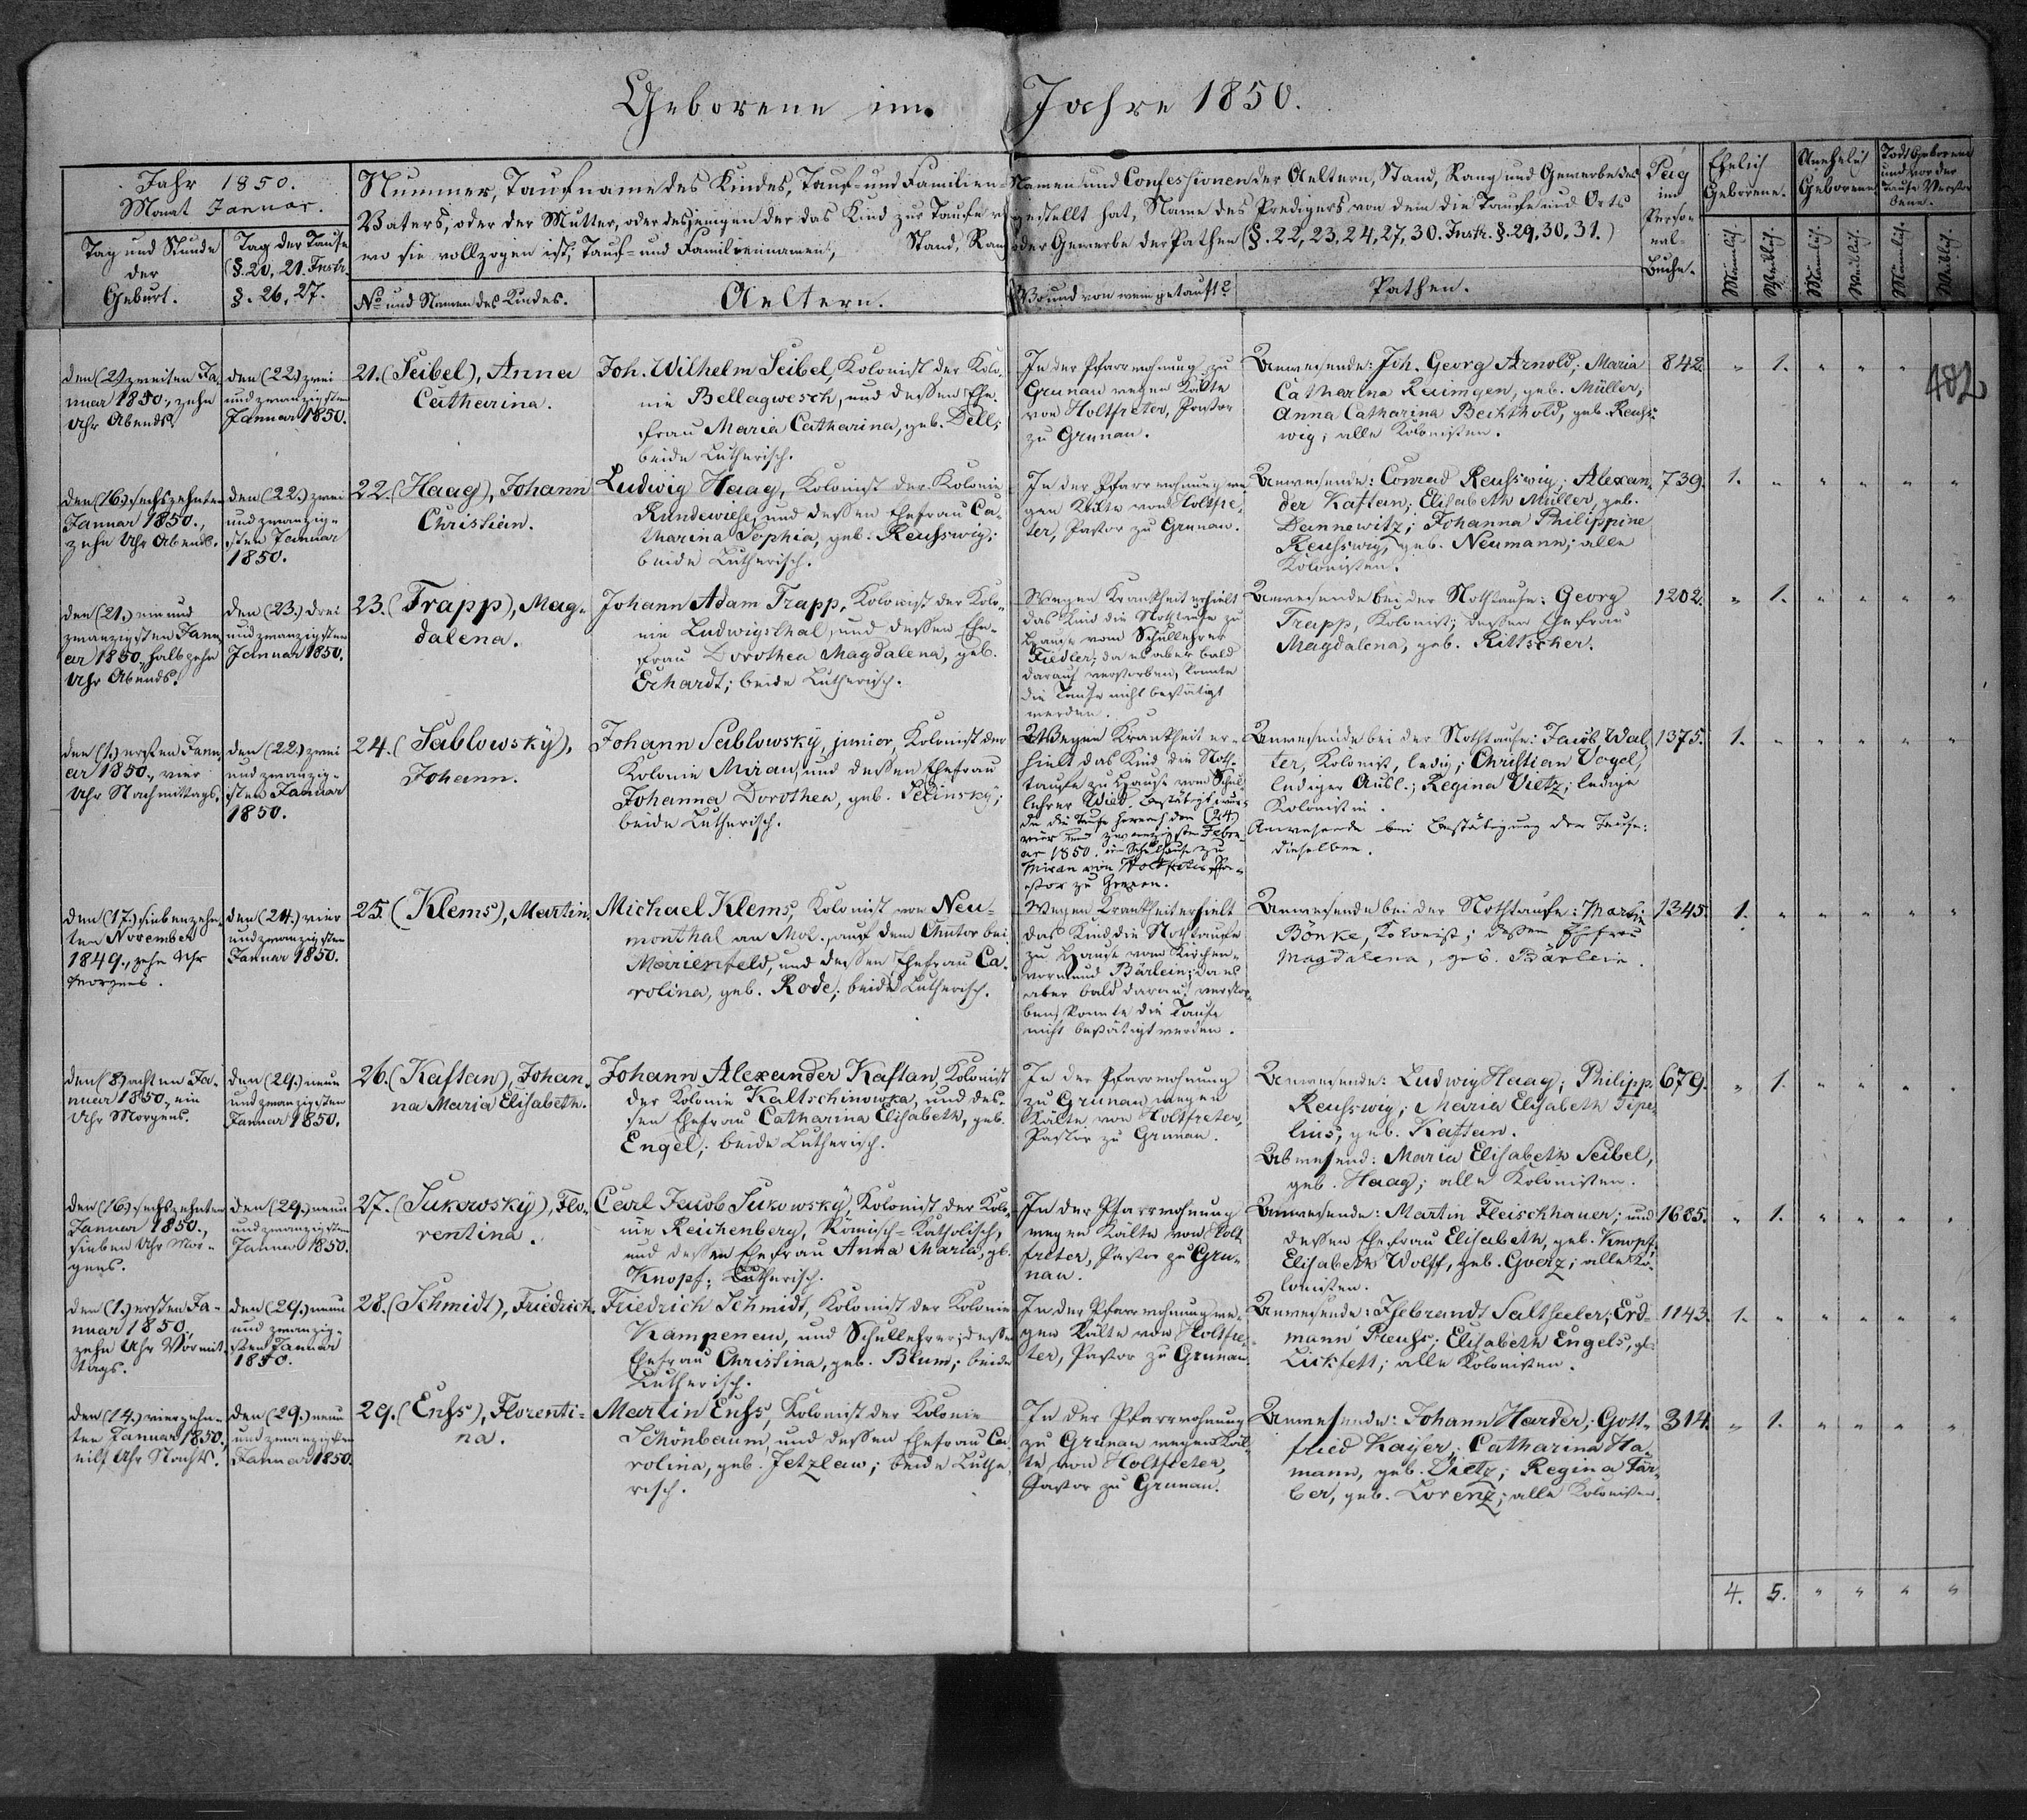 Geborene im Jahre 1850.
Jahr 1850.
Monat Januar.
Tag und Stunde
der
Geburt.
Tag der Taufe
(§. 20, 21. Instr.
§. 26, 27.
Nummer, Taufname des Kindes, Tauf- und Familien-Namen und Confessionen der Aeltern, Stand, Rang und Gewerbe des
Vaters, oder der Mutter, oder desjenigen der das Kind zur Taufe gestellt hat, Name des Predigers von dem die Taufe und Orts
wo sie vollzogen ist, Tauf- und Familiennamen, Stand, Rang oder Gewerbe der Pathen (§. 22, 23, 24, 27, 30. Instr. §. 29, 30, 31.)
No und Namen des Kindes.
Aeltern.
Wo und von wem getauft?
Pathen.
Pag
im
Perso-
nal-
Buche.
Ehelich
Geborene.
Unehelich
Geborene
Todt Geborene
und vor der
Taufe Verstor-
bene.
Männlich.
Weiblich.
Männlich.
Weiblich.
Männlich.
Weiblich.
482
den (2) zweiten Ja-
nuar 1850., zehn
Uhr Abends.
den (22) zwei
und zwanzigsten
Januar 1850.
21. (Seibel), Anna
Catharina.
Joh. Wilhelm Seibel, Kolonist der Kolo-
nie Bellagwesch, und dessen Ehe-
frau Maria Catharina, geb. Dell;
beide Lutherisch.
In der Pfarrwohnung zu
Grunau wegen Kälte
von Holtfreter, Pastor
zu Grunau.
Anwesende: Joh. Georg Arnold; Maria
Catharina Reuimgen, geb. Müller;
Anna Catharina Bechthold, geb. Reuss-
wig; alle Kolonisten.
842. " 1. " " "
den (16.) sechszehnten
Januar 1850.,
zehn Uhr Abends.
den (22.) zwei
und zwanzig-
sten Januar
1850.
22. (Haag), Johann
Christian.
Ludwig Haag, Kolonist der Kolonie
Rundewiese, und dessen Ehefrau Ca-
tharina Sophia, geb. Reusswig;
beide Lutherisch.
In der Pfarrwohnung we-
gen Kälte von Holtfre-
ter, Pastor zu Grunau.
Anwesende: Conrad Reusswig; Alexan-
der Kaftan; Elisabeth Müller, geb.
Dannewitz; Johanna Philippine
Reusswig, geb. Neumann; alle
Kolonisten.
739. 1. " " " " "
den (21.) ein und
zwanzigsten Janu-
ar 1850., halb zehn
Uhr Abends.
den (23.) drei
und zwanzigsten
Januar 1850.
23. (Trapp), Mag-
dalena.
Johann Adam Trapp, Kolonist der Kolo-
nie Ludwigsthal, und dessen Ehe-
frau Dorothea Magdalena, geb.
Erhardt; beide Lutherisch.
Wegen Krankheit erhielt
das Kind die Nottaufe zu
Hause vom Schullehrer
Fiedler; da es aber bald
darauf verstorben, konnte
die Taufe nicht bestätigt
werden.
Anwesende bei der Nothtaufe: Georg
Trapp, Kolonist; dessen Ehefrau
Magdalena, geb. Rittscher.
1202. " 1. " " " "
den (1.) ersten Janu-
ar 1850., vier
Uhr Nachmittags.
den (22.) zwei
und zwanzig-
sten Januar
1850.
24. (Sablowskÿ),
Johann.
Johann Sablowskÿ, junior, Kolonist der
Kolonie Mirau, und dessen Ehefrau
Johanna Dorothea, geb. Selinskÿ;
beide Lutherisch.
Wegen Krankheit er-
hielt das Kind die Noth-
taufe zu Hause vom Schul-
lehrer Wieb. Bestätigt wur-
de die Taufe hernach den (24)
vier und zwanzigsten Febru-
ar 1850. im Schulhause zu
Mirau von Holtfreter, Pa-
stor zu Grunau.
Anwesende bei der Nothtaufe: Jacob Wal-
ter, Kolonist, ledig; Christian Vogel,
lediger Ausl.; Regina Vietz; ledige
Kolonistin.
Anwesende bei Bestätigung der Taufe:
dieselben.
1375. 1. " " " " "
den (17.) siebenzehn-
ten November
1849., zehn Uhr
Morgens.
den (24.) vier
und zwanzigsten
Januar 1850.
25. (Klems), Martin.
Michael Klems, Kolonist von Neu-
monthal an Mol., auf dem Chutor bei
Marienfeld, und dessen Ehefrau Ca-
rolina, geb. Rode; beide Lutherisch.
Wegen Krankheit erhielt
das Kind die Nothtaufe
zu Hause vom Kirchen-
vormund Bärlein; da es
aber bald darauf verstor-
ben, konnte die Taufe
nicht bestätigt werden.
Anwesende bei der Nothtaufe: Martin
Bönke, Kolonist; dessen Ehefrau
Magdalena, geb. Bärlein.
1345. 1. " " " " "
den (8) achten Ja-
nuar 1850., ein
Uhr Morgens.
den (29.) neun
und zwanzigsten
Januar 1850.
26. (Kaftan), Johan-
na Maria Elisabeth.
Johann Alexander Kaftan, Kolonist
der Kolonie Kaltschinowka, und des-
sen Ehefrau Catharina Elisabeth, geb.
Engel; beide Lutherisch.
In der Pfarrwohnung
zu Grunau wegen
Kälte von Holtfreter,
Pastor zu Grunau.
Anwesende: Ludwig Haag; Philipp
Reusswig; Maria Elisabeth Sipe-
lius, geb. Kaftan.
Abwesend: Maria Elisabeth Seibel,
geb. Haag; alle Kolonisten.
679. " 1. " " " "
den (16.) sechszehnten
Januar 1850.,
sieben Uhr Mor-
gens.
den (29.) neun
und zwanzigsten
Januar 1850.
27. (Sukowskÿ), Flo-
rentina.
Carl Jacob Sukowskÿ, Kolonist der Kolo-
nie Reichenberg, Römisch-Katholisch,
und dessen Ehefrau Anna Maria, gb.
Knopf; Lutherisch.
In der Pfarrwohnung
wegen Kälte von Holt-
freter, Pastor zu Gru-
nau.
Anwesende: Martin Fleischhauer; und
dessen Ehefrau Elisabeth, geb. Knopf;
Elisabeth Wolff, geb. Goerz; alle Ko-
lonisten.
1685. " 1. " " " "
den (1.) ersten Ja-
nuar 1850.,
zehn Uhr Vormit-
tags.
den (29.) neun
und zwanzig-
sten Januar
1850.
28. (Schmidt), Friedrich.
Friedrich Schmidt, Kolonist der Kolonie
Kampenau, und Schullehrer; dessen
Ehefrau Christina, geb. Blum; beide
Lutherisch.
In der Pfarrwohnung we-
gen Kälte von Holtfre-
ter, Pastor zu Grunau.
Anwesende: Isebrandt Saltseeler; Erd-
mann Preuss; Elisabeth Engels, gb.
Lickfett; alle Kolonisten.
1143. 1. " " " " "
den (14.) vierzehn-
ten Januar 1850.,
eilf Uhr Nachts.
den (29.) neun
und zwanzigsten
Januar 1850.
29. (Enss), Florenti-
na.
Martin Enss, Kolonist der Kolonie
Schönbaum, und dessen Ehefrau Ca-
rolina, geb. Jetzlaw; beide Luthe-
risch.
In der Pfarrwohnung
zu Grunau wegen Käl-
te von Holtfreter,
Pastor zu Grunau.
Anwesende: Johann Harder; Gott-
fried Kaiser; Catharina Ha-
mann, geb. Vietz; Regina Fär-
ber, geb. Lorenz; alle Kolonisten.
314. " 1. " " " "
4. 5. " " " "